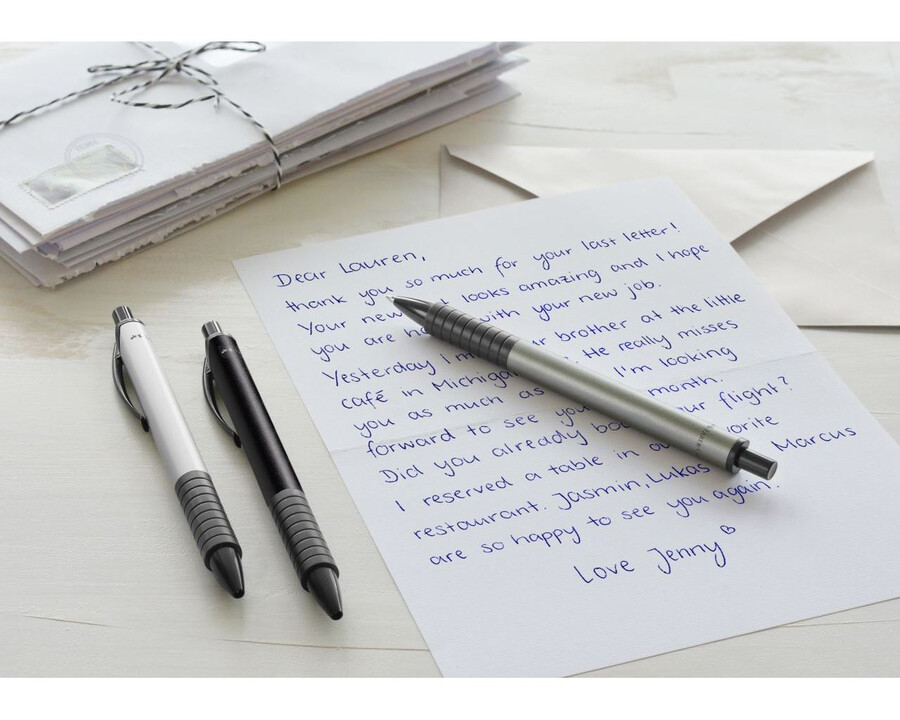 Dear Lauren,
thank you so much for your last letter!
Your new looks amazing and I hope
you are with your new job.
Yesterday I brother at the little
café in He really misses
you as much as I'm looking
forward to see month.
Did you already flight?
I reserved a table in
restaurant. Jasmin, Lukas Marcus
are so happy to see you again.
Love Jenny